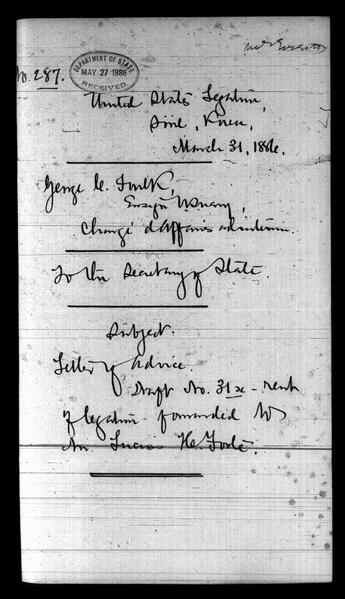 No. 287.
DEPARTMENT OF STATE
MAY 27 1886
RECEIVED
United States Legation,
Söul, Korea,
March 31, 1886.
George C. Foulk,
Ensign U.S. Navy,
Chargé d'Affaires ad interim.
To the Secretary of State.
Subject.
Letter of Advice.
Draft No. 31x - rent
of legation forwarded to
Mr. Lucius H. Foote.